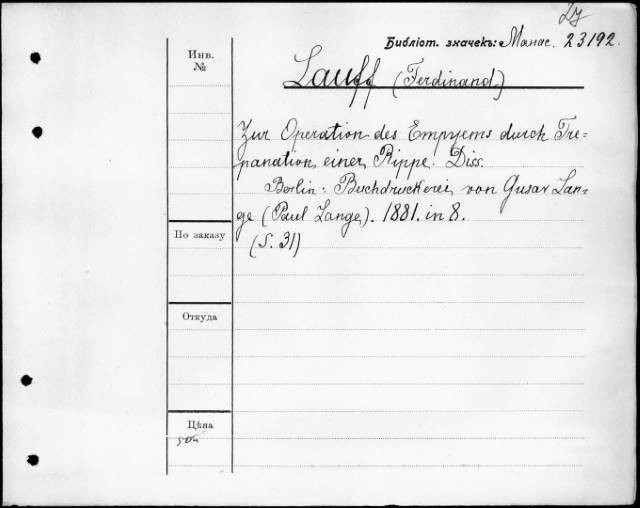 Библіот. значекъ: Манас. 23192.
Инв.
№
Lauff (Ferdinand)
Zur Operation des Empyems durch Tre-
panation einer Rippe. Diss.
Berlin: Buchdruckerei von Gusav Lan-
ge (Paul Lange). 1881. in 8.
(S. 31)
По заказу
Откуда
Цѣна